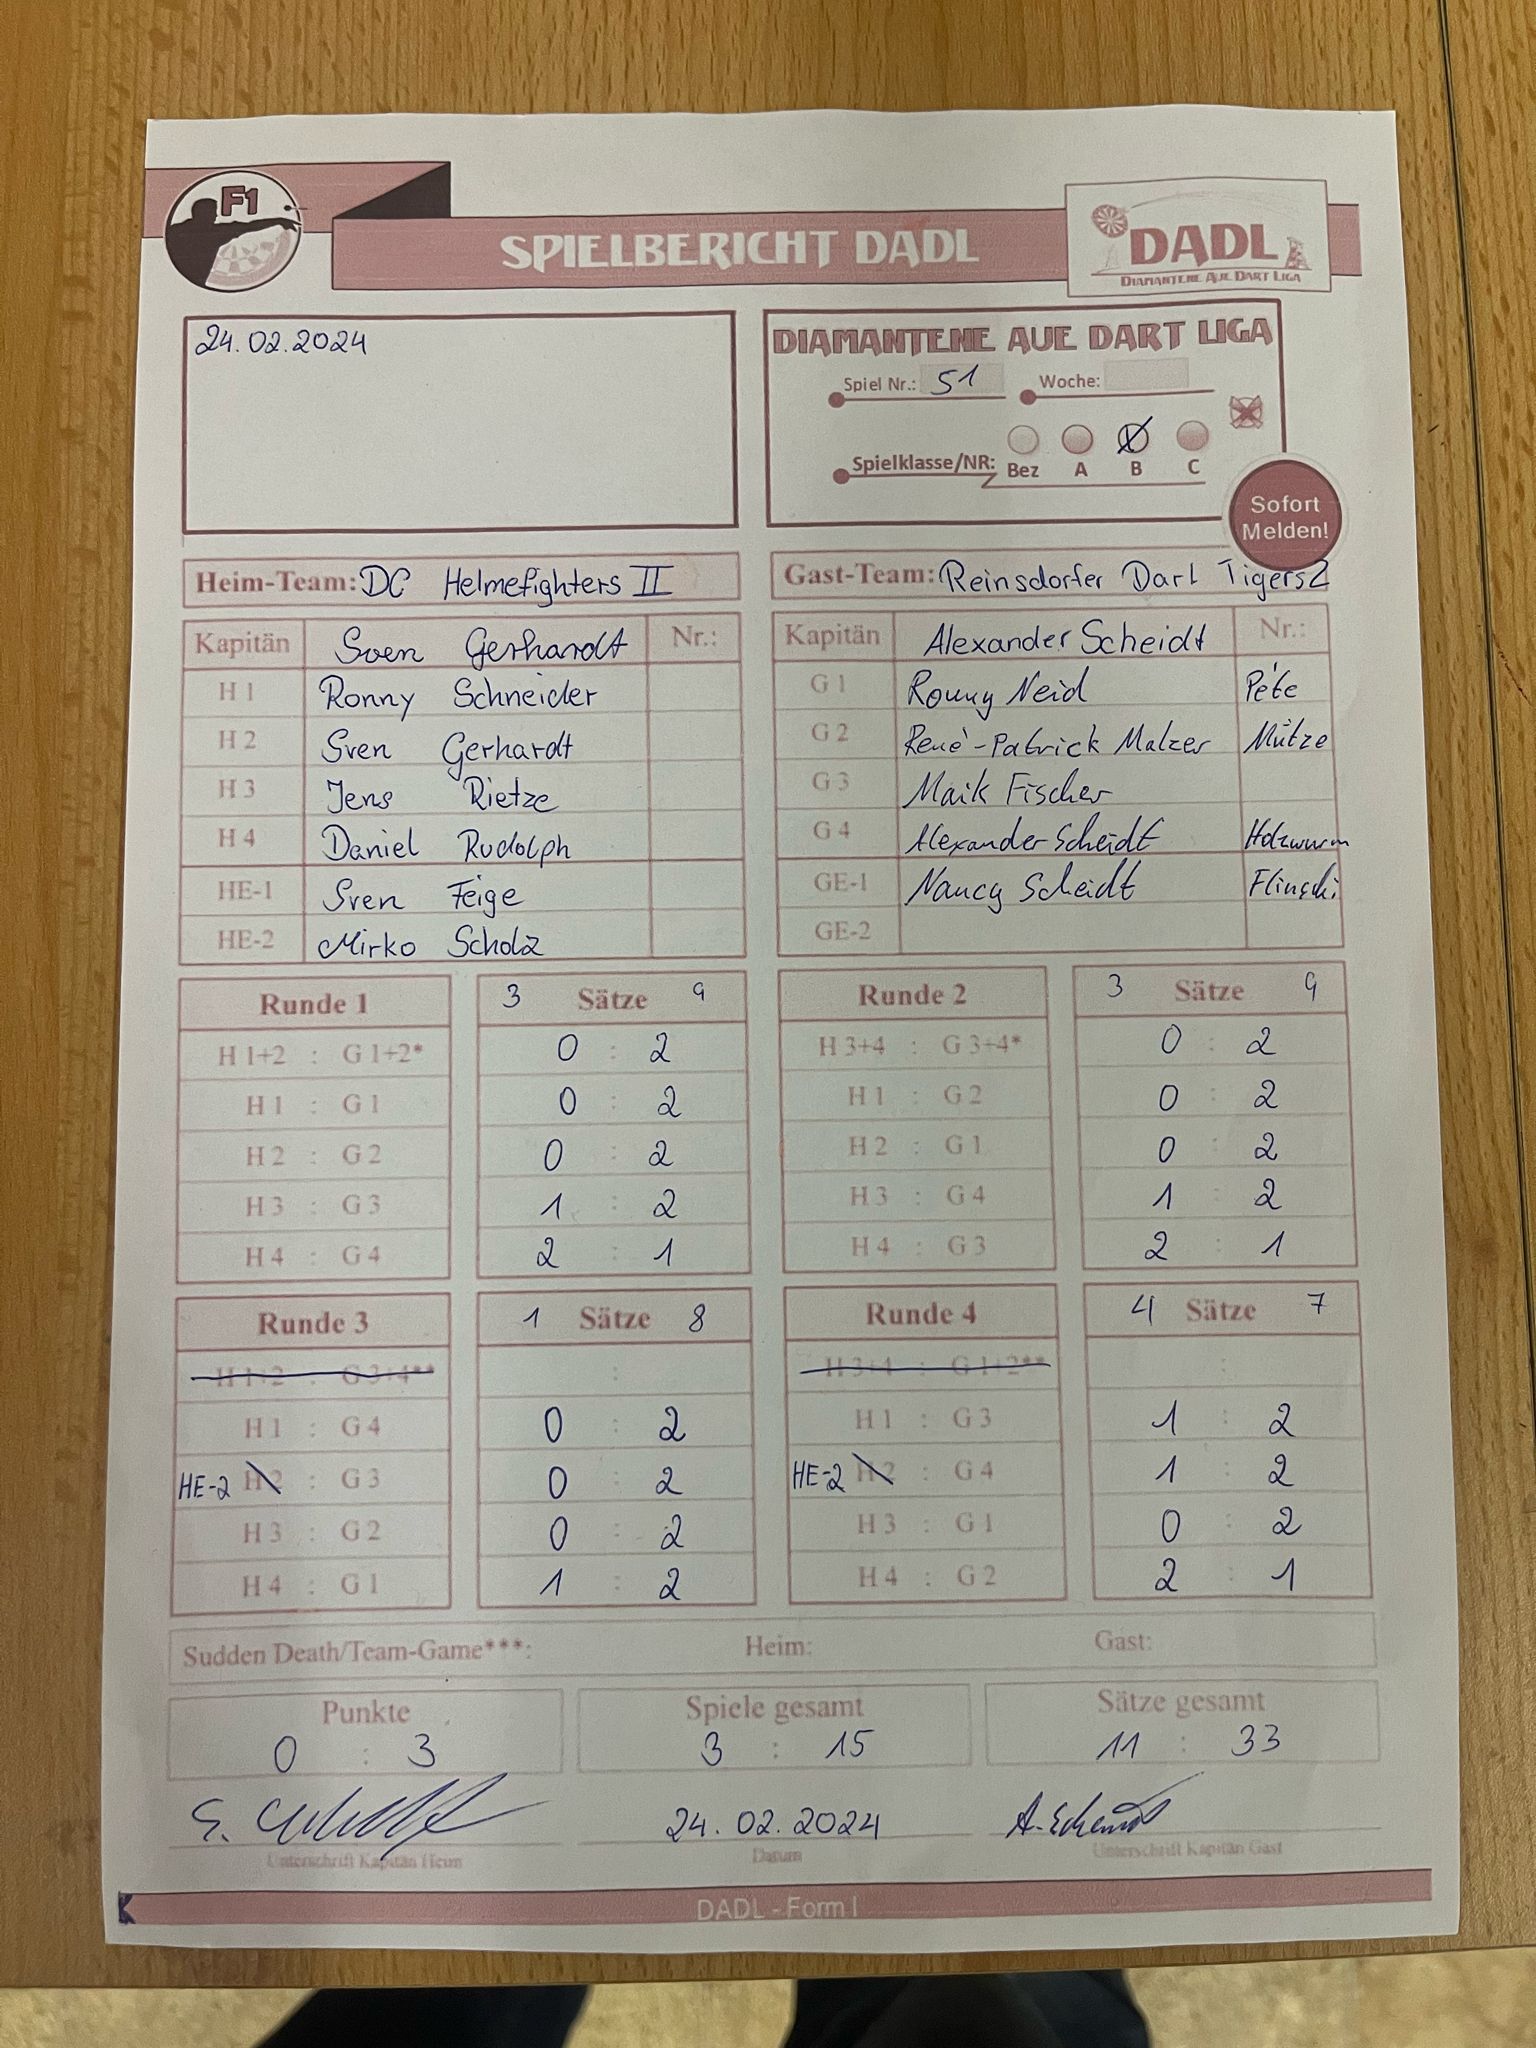 F1
SPIELBERICHT DADL
DADL
DIAMANTENE AUE DART LIGA
24.02.2024
DIAMANTENE AUE DART LIGA
Spiel Nr.: 51 Woche:
Spielklasse/NR: Bez A B C
Sofort
Melden!
Heim-Team: DC Helmefighters II
Kapitän Sven Gerhardt Nr.:
H 1 Ronny Schneider
H 2 Sven Gerhardt
H 3 Jens Rietze
H 4 Daniel Rudolph
HE-1 Sven Feige
HE-2 Mirko Scholz
Gast-Team: Reinsdorfer Dart Tigers 2
Kapitän Alexander Scheidt Nr.:
G 1 Ronny Neid Pete
G 2 René-Patrick Malzer Mütze
G 3 Maik Fischer
G 4 Alexander Scheidt Holzwurm
GE-1 Nancy Scheidt
GE-2
Runde 1 3 Sätze 9
H 1+2 : G 1+2* 0 : 2
H 1 : G 1 0 : 2
H 2 : G 2 0 : 2
H 3 : G 3 1 : 2
H 4 : G 4 2 : 1
Runde 2 3 Sätze 9
H 3+4 : G 3+4* 0 : 2
H 1 : G 2 0 : 2
H 2 : G 1 0 : 2
H 3 : G 4 1 : 2
H 4 : G 3 2 : 1
Runde 3 1 Sätze 8
H 1+2 : G 3+4** :
H 1 : G 4 0 : 2
HE-2 H 2 : G 3 0 : 2
H 3 : G 2 0 : 2
H 4 : G 1 1 : 2
Runde 4 4 Sätze 7
H 3+4 : G 1+2** :
H 1 : G 3 1 : 2
HE-2 H 2 : G 4 1 : 2
H 3 : G 1 0 : 2
H 4 : G 2 2 : 1
Sudden Death/Team-Game***: Heim: Gast:
Punkte Spiele gesamt Sätze gesamt
0 : 3 3 : 15 11 : 33
24.02.2024 A. Scheidt
Unterschrift Kapitän Heim Datum Unterschrift Kapitän Gast
DADL - Form I